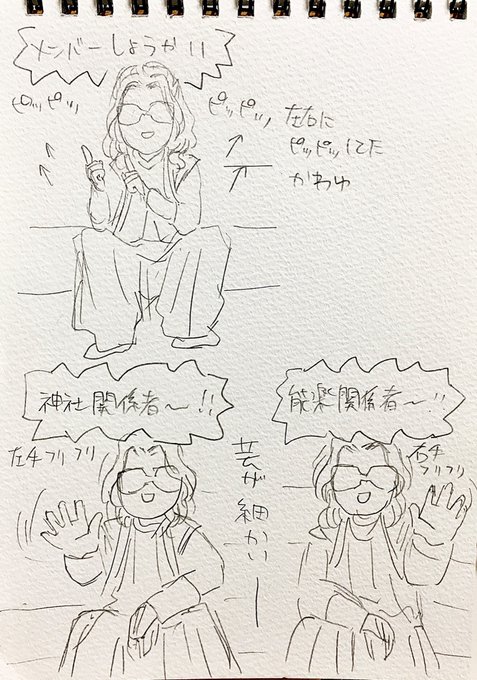 メンバーしょうかい!!
ピッピッ
ピッピッ
左右に
ピッピッしてた
かわゆ
神社関係者〜!!
能楽関係者〜!!
左手フリフリ
芸が細かいー
右手
フリフリ